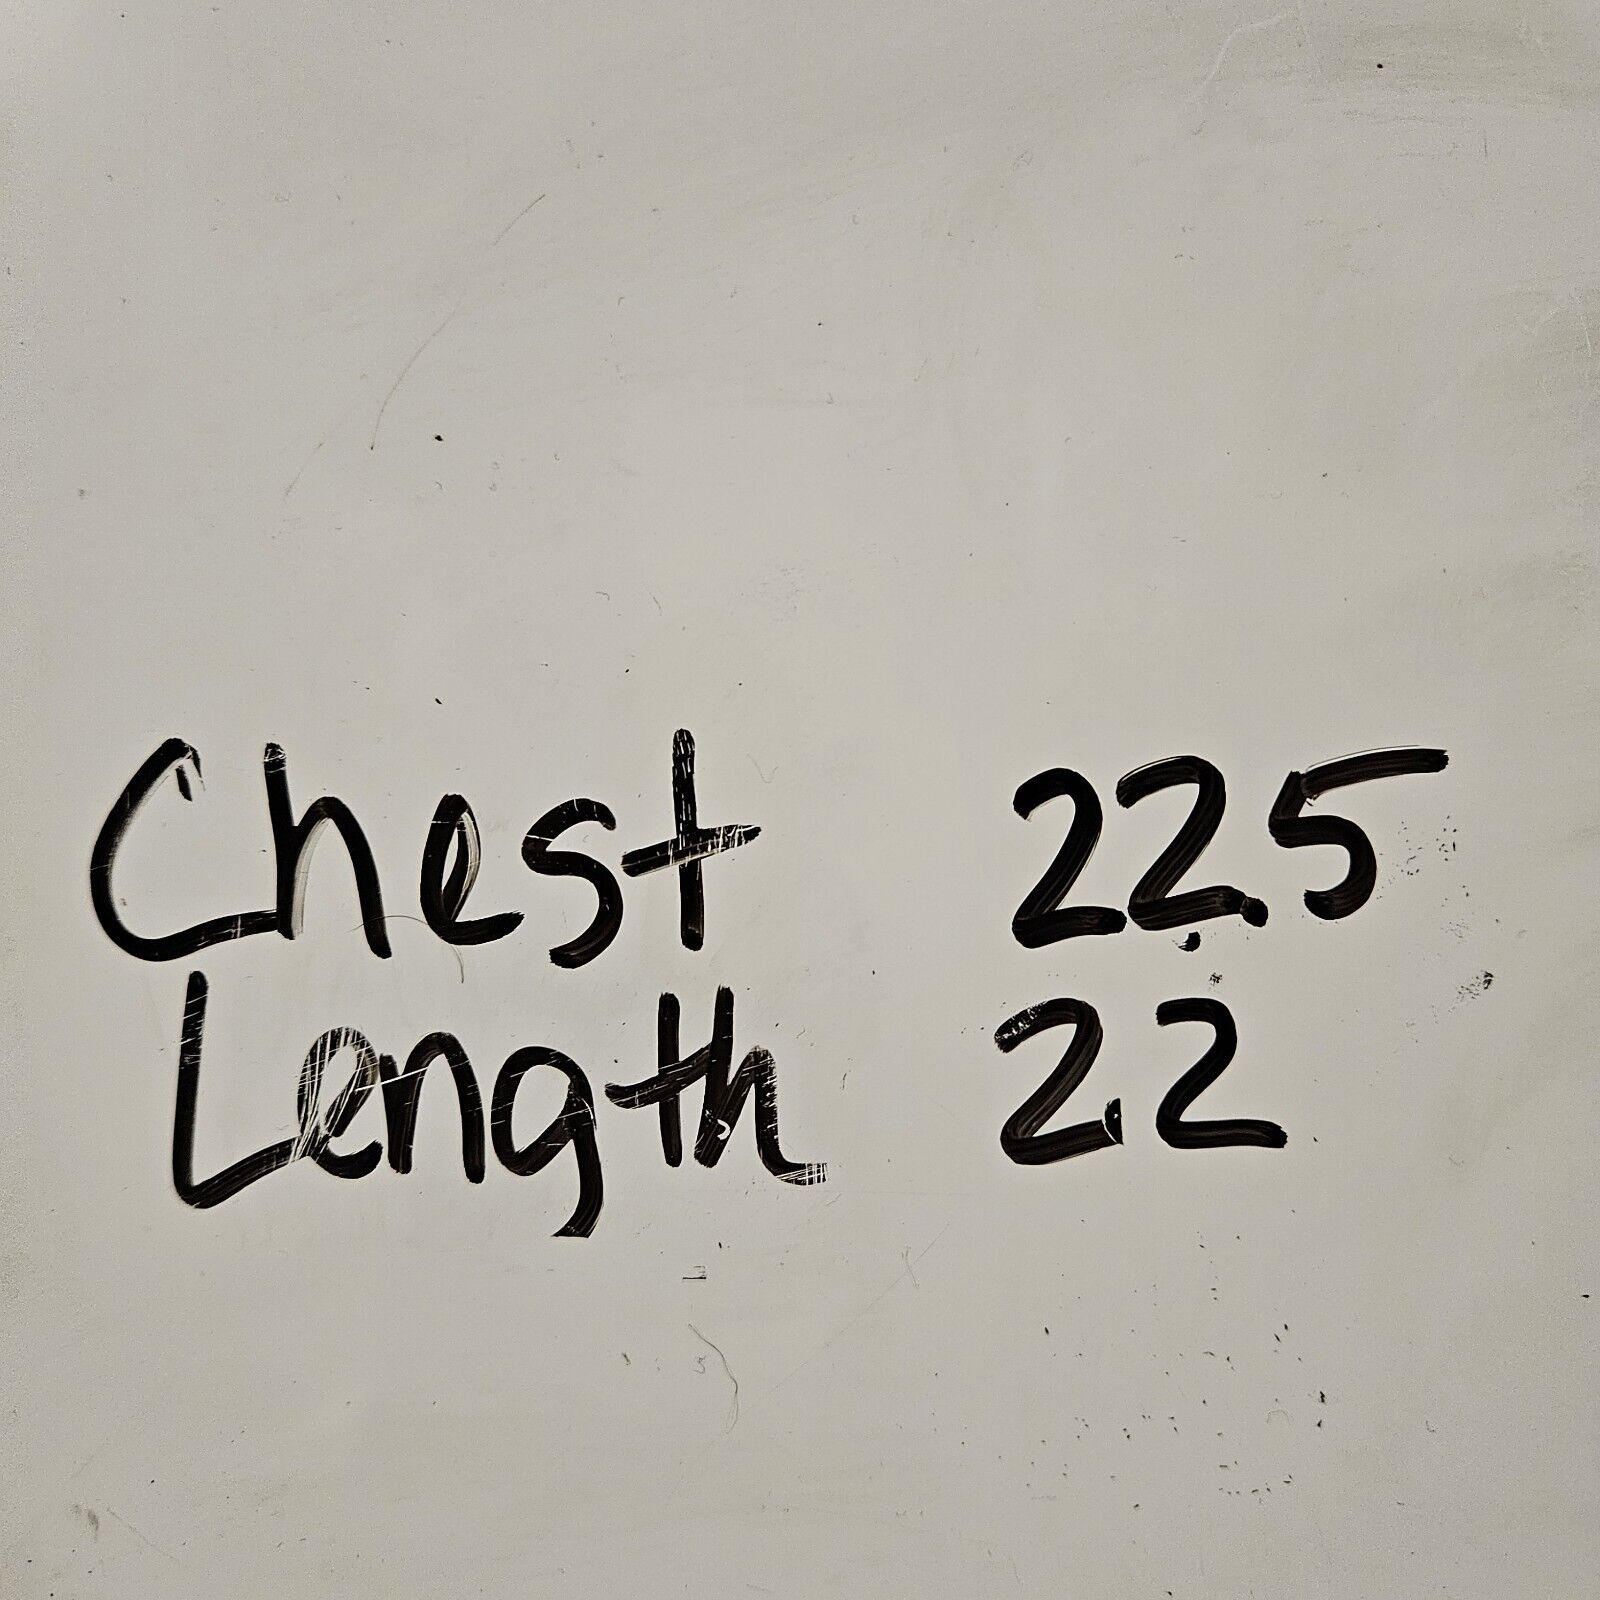 Chest 22.5
Length 22